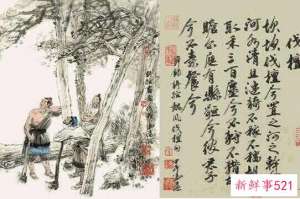 伐檀
坎坎伐檀兮置之河之
河水清且漣猗不稼不穡胡
取禾三百廛兮不狩不獵
瞻尔庭有縣貆兮彼君子
兮不素餐兮
新鮮事521